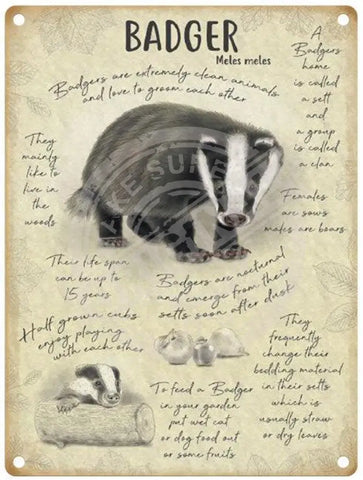 BADGER
Meles meles
Badgers are extremely clean animals
and love to groom each other
A
Badgers
home
is called
a sett
and
a group
is called
a clan
They
mainly
like to
live in
the
woods
Females
are sows
males are boars
Their life span
can be up to
15 years
Badgers are nocturnal
and emerge from their
setts soon after dusk
Half grown cubs
enjoy playing
with each other
They
frequently
change their
bedding material
in their setts
which is
usually straw
or dry leaves
To feed a Badger
in your garden
put wet cat
or dog food out
or some fruits